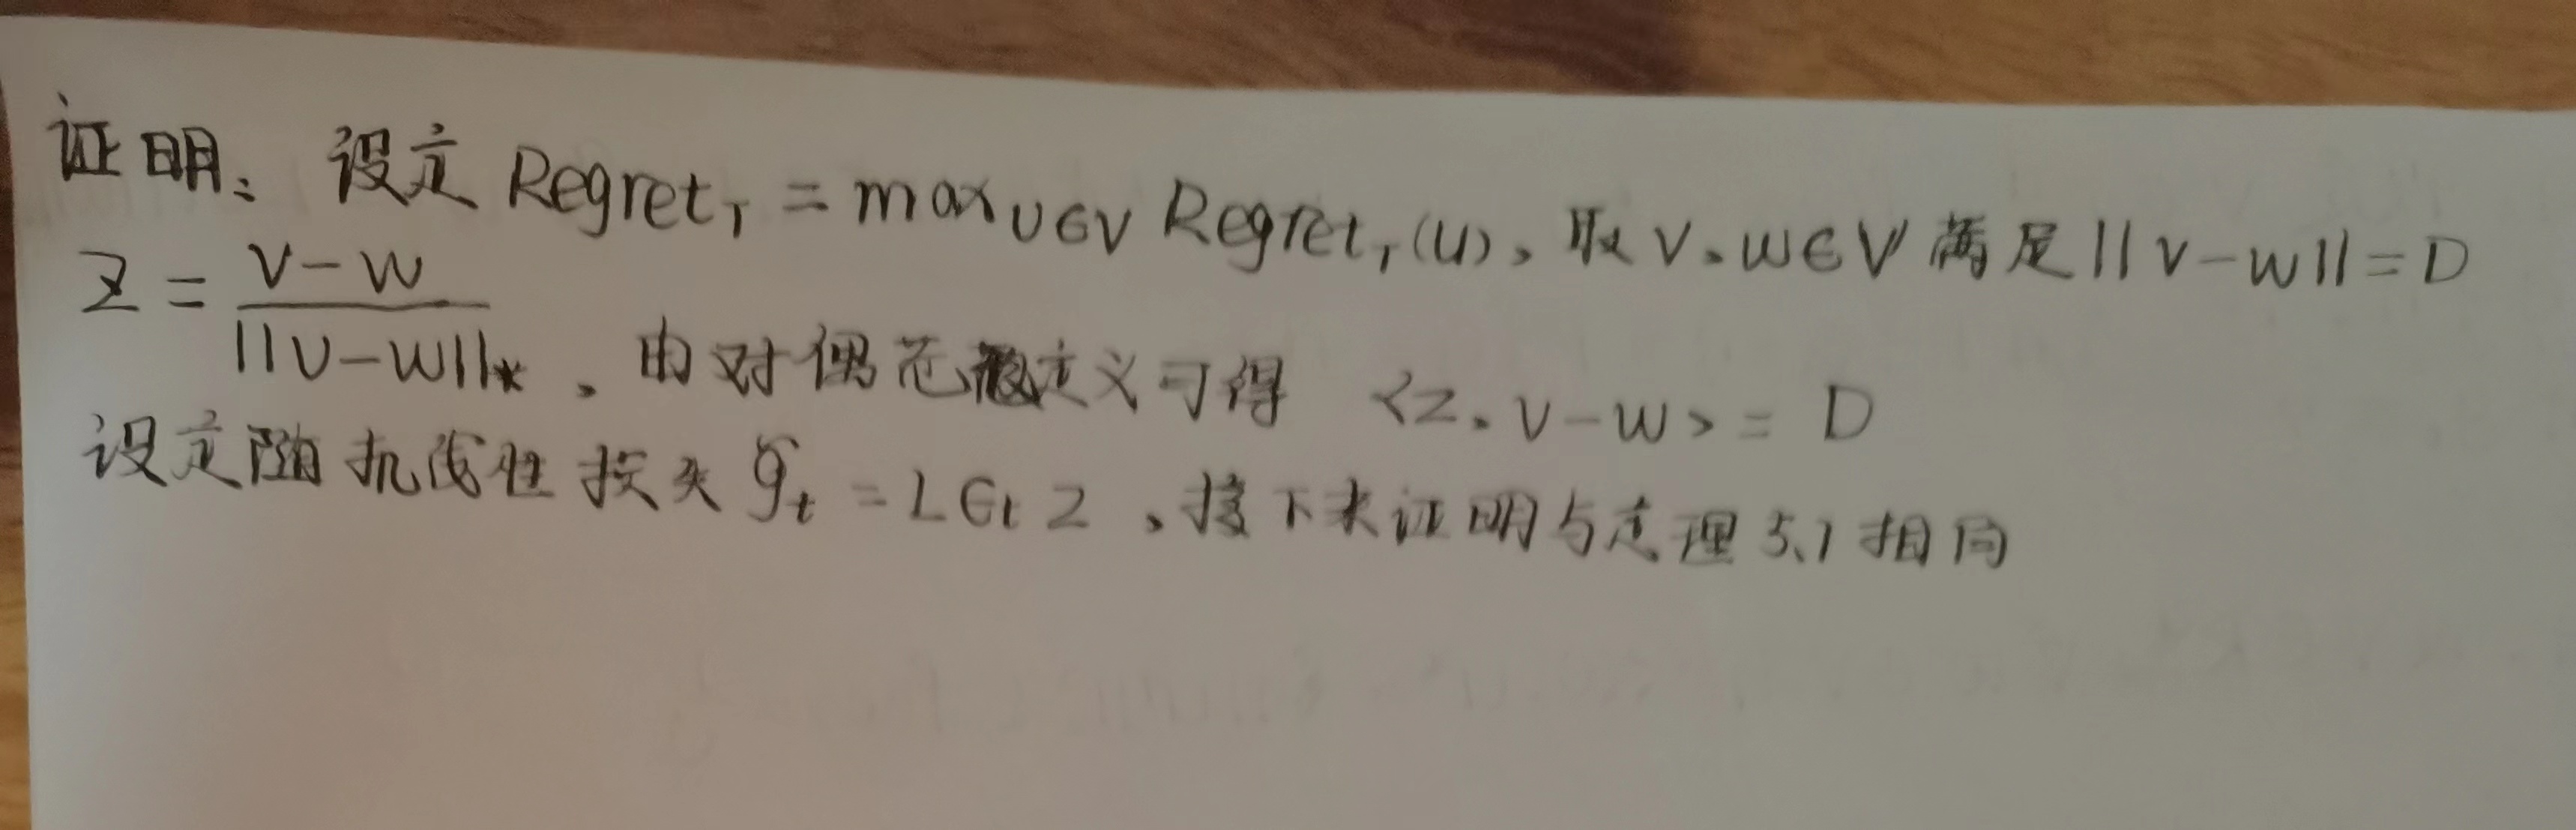 证明：设定 Regret_T = max_{U∈V} Regret_T(U)，取 V、W∈V 满足 ||V-W||=D
Z = \frac{V-W}{||V-W||_*}，由对偶范数定义可得 <Z, V-W> = D
设定随机线性损失 \tilde{g}_t = Lϵ_t Z，接下来证明与定理5.1相同